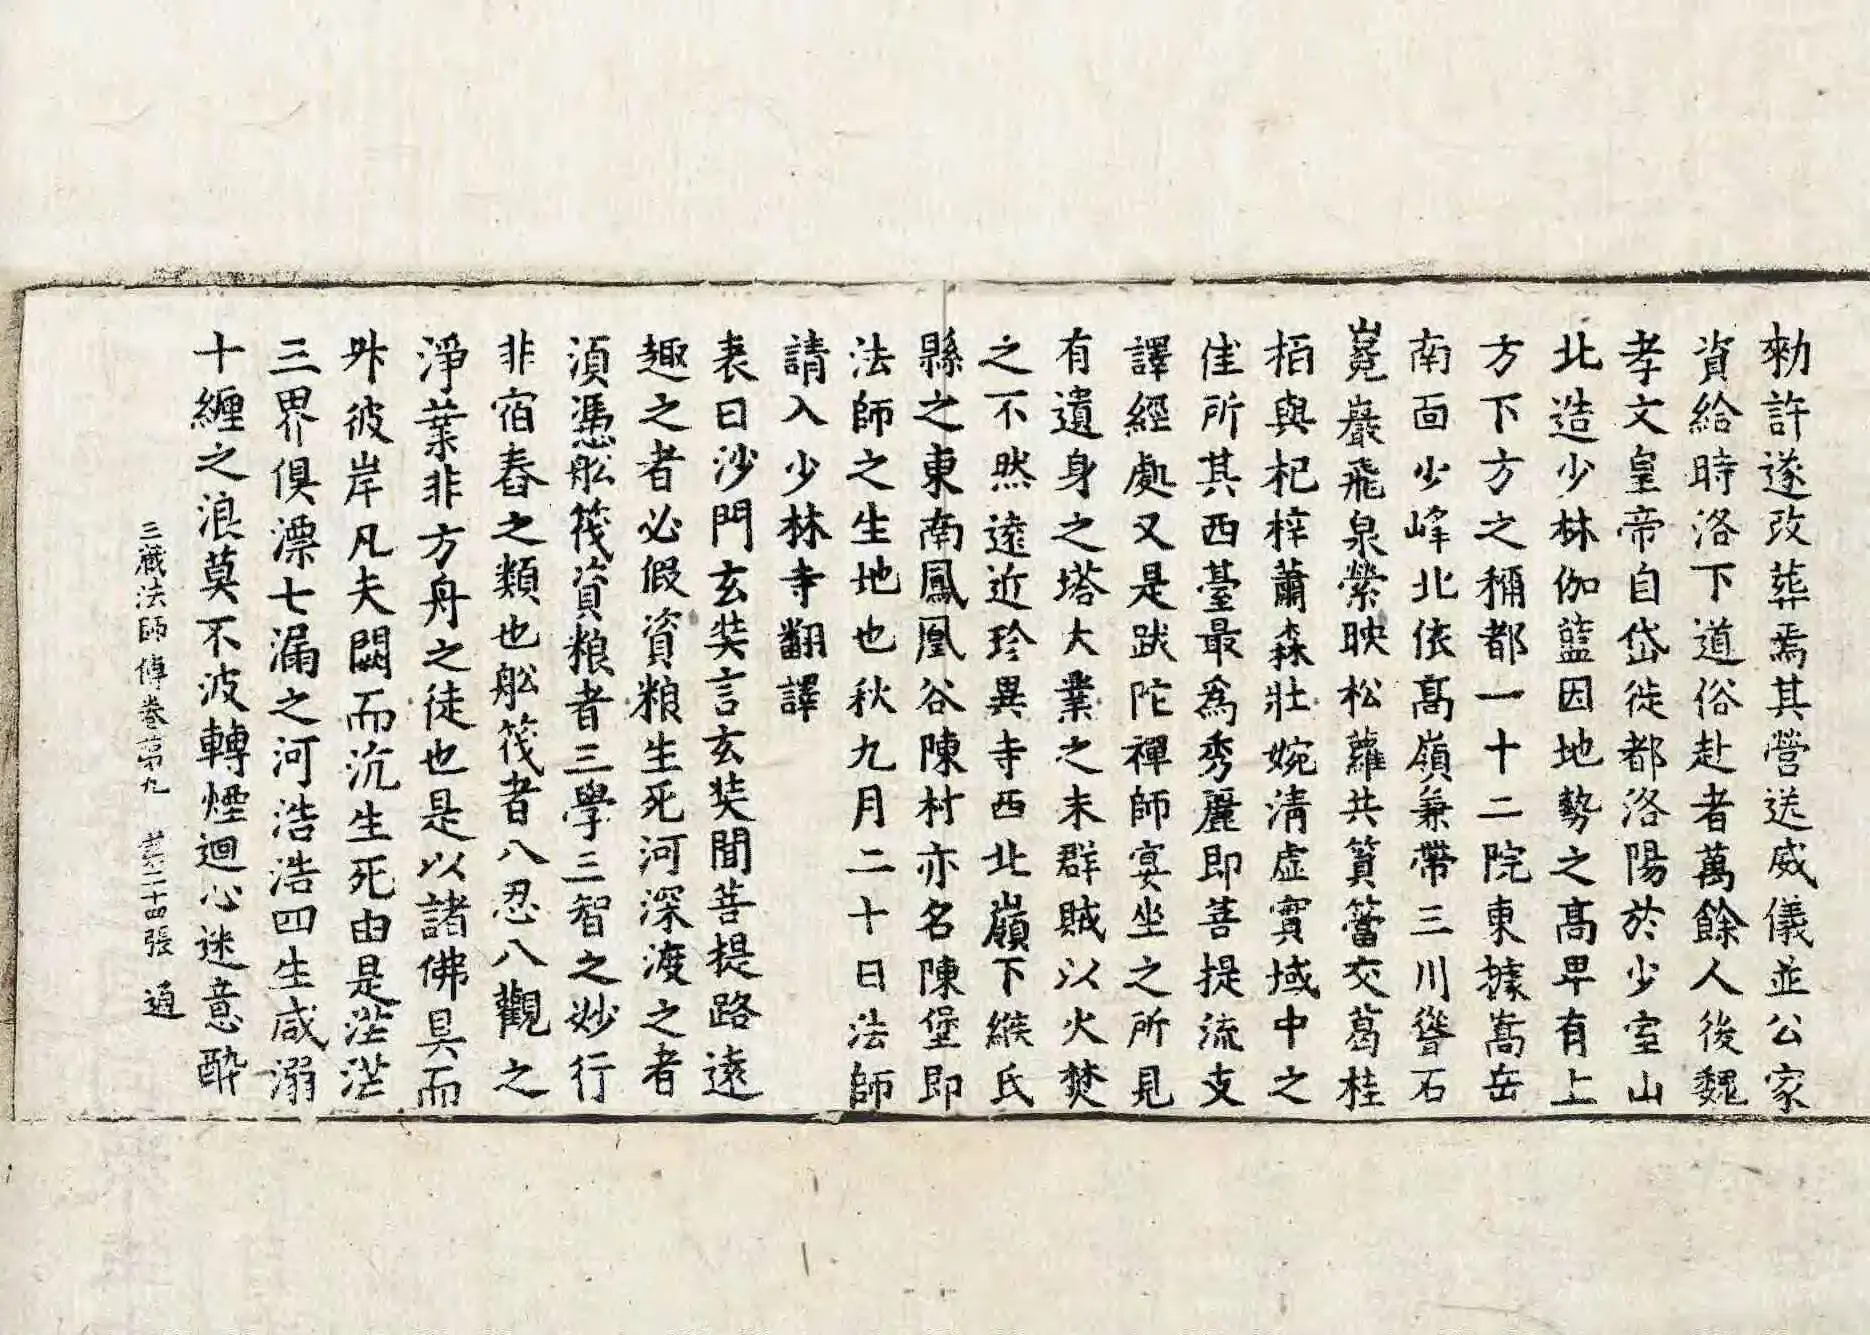 勑許遂改葬焉其營送威儀並公家
資給時洛下道俗赴者萬餘人後魏
孝文皇帝自岱徙都洛陽於少室山
北造少林伽藍因地勢之高卑有上
方下方之稱都一十二院東據嵩岳
南面少峰北依高嶺兼帶三川聳石
巉巖飛泉縈映松蘿共篔簹交葛桂
栢與杞梓蕭森壯婉清虛實域中之
佳所其西臺最爲秀麗即菩提流支
譯經處又是跋陀禪師宴坐之所見
有遺身之塔大業之末群賊以火焚
之不然遠近珍異寺西北嶺下緱氏
縣之東南鳳凰谷陳村亦名陳堡即
法師之生地也秋九月二十日法師
請入少林寺翻譯
表曰沙門玄奘言玄奘聞菩提路遠
趣之者必假資粮生死河深渡之者
須憑舩筏資粮者三學三智之妙行
非宿舂之類也舩筏者八忍八觀之
淨業非方舟之徒也是以諸佛具而
升彼岸凡夫闕而沉生死由是茫茫
三界俱漂七漏之河浩浩四生咸溺
十纏之浪莫不波轉煙迴心迷意醉
三藏法師傳卷第九 第二十四張 通